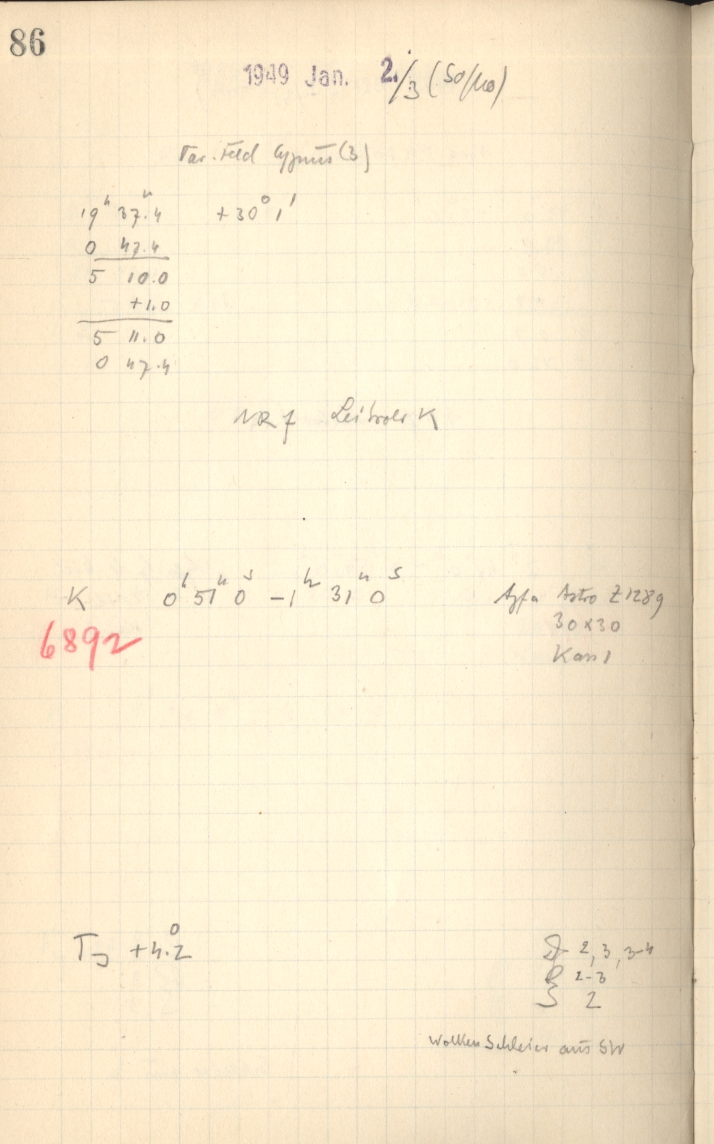 86
1949 Jan. 2./3 (So/Mo)
Var. Feld Cygnus (3)
19ʰ 37.4ᵐ +30° 1'
0 47.4
5 10.0
+1.0
5 11.0
0 47.4
NR 7 K
K 0ʰ 51ᵐ 0ˢ – 1ʰ 31ᵐ 0ˢ Agfa Astro Z 1289
6892 30x30
Kass 1
+4.2°
2, 3, 3-4
2-3
S 2
Wolken Schleier aus SW